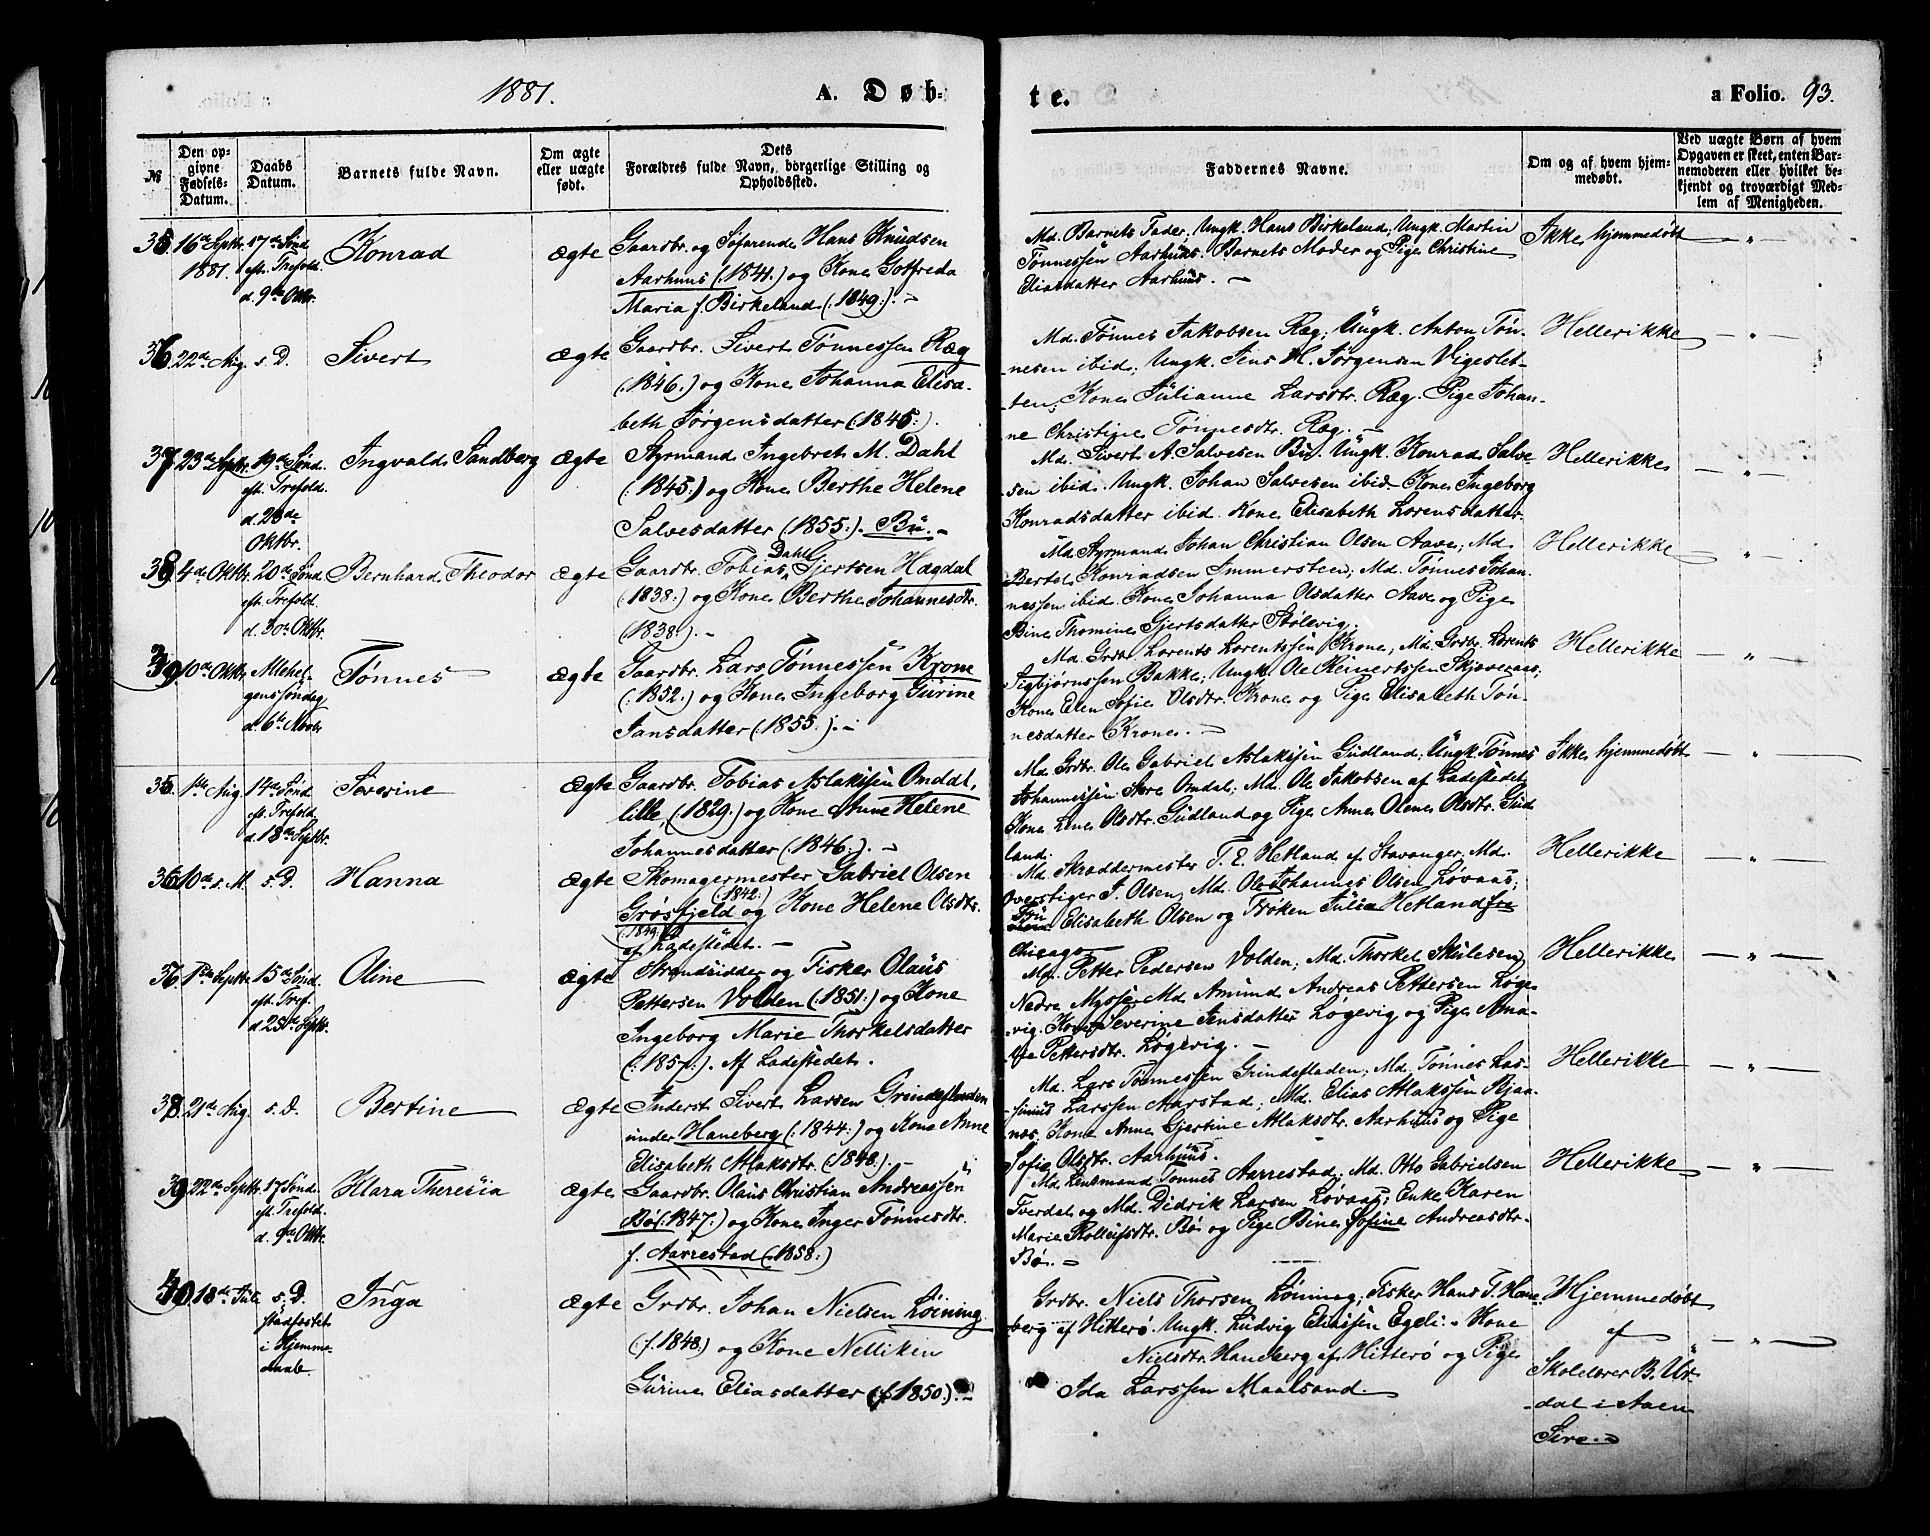 1881.
A. Døb-
te.
a Folio. 93.
№
Den op-
givne
Fødsels-
Datum.
Daabs
Datum.
Barnets fulde Navn.
Om ægte
eller uægte
født.
Dets
Forældres fulde Navn, borgerlige Stilling og
Opholdssted.
Faddernes Navne.
Om og af hvem hjem-
medøbt.
Ved uægte Børn af hvem
Opgaven er skeet, enten Bar-
nemoderen eller hvilket be-
kjendt og troværdigt Med-
lem af Menigheden.
35
16de Septbr.
1881.
17de Sønd.
eft. Trefold.
d. 9de Oktbr.
Konrad
ægte
Gaardbr. og Søfarende Hans Knudsen
Aarhuus (:1841:) og Kone Gotfreda
Maria f. Birkeland (:1849:).-
Md. Barnets Fader, Ungk. Hans Birkeland, Ungk. Martin
Tønnessen Aarhuus. Barnets Moder og Pige Christine
Eliasdatter Aarhuus. -
Ikke hjemmedøbt
- " -
36
22de Aug.
s. D.
Sivert
ægte
Gaardbr. Sivert Tønnessen Ræg
(:1846:) og Kone Johanna Elisa-
beth Jørgensdatter (:1845:).
Md. Tønnes Jakobsen Ræg; Ungk. Anton Tøn-
nesen ibid; Ungk. Jens H. Jørgensen Vigeslet-
ten, Kone Juliane Larsdtr. Ræg. Pige Johan-
ne Christine Tønnesdtr. Ræg. -
Hellerikke
- " -
37
23de Septbr.
19de Sønd.
eft. Trefold.
d. 23de
Oktbr.
Ingvald Sandberg
ægte
Styrmand Ingebret M. Dahl
(:1845:) og Kone Berthe Helene
Salvesdatter (:1855:). Bu.-
Md. Sivert A. Salvesen Bu. Ungk. Konrad Salve-
sen ibid. Ungk. Johan Salvesen ibid. Kone Ingeborg
Konradsdatter ibid. Kone Elisabeth Lorensdatter.
Hellerikke
- " -
38
4de Oktbr.
20de Sønd.
eft. Trefold.
d. 30te Oktbr.
Bernhard Theodor
ægte
Gaardbr. Tobias Dahl Gjertsen Hægdal
(:1838:) og Kone Berthe Johannesdtr.
(:1838:).-
Md. Styrmand Johan Christian Olsen Aave; Md.
Bertel Konradsen Immersteen; Md. Tønnes Johan-
nessen ibid. Kone Johanna Olsdatter Aave og Pige
Bine Thomine Gjertsdatter Stølevig.
Hellerikke
- " -
39
10de Oktbr.
Allehel-
genssøndag
d. 6te Novbr.
Tønnes
ægte
Gaardbr. Lars Tønnessen Krone
(:1852:) og Kone Ingeborg Gurine
Jansdatter (:1855:).-
Md. Grdbr. Lorents Lorentssen Krone, Md. Grdbr. Lorents
Sigbjørnssen Bakke; Ungk. Ole Reinertssen Skjeveraas;
Kone Elen Sofie Olsdtr. Krone og Pige Elisabeth Tøn-
nesdatter Krone. -
Hellerikke
- " -
35.
1ste Aug.
14de Sønd.
eft. Trefold.
d. 18de Septbr.
Severine
ægte
Gaardbr. Tobias Aslaksen Omdal,
lille, (:1829:) og Kone Anne Helene
Johannesdatter (:1846:). -
Md. Grdbr. Ole Gabriel Aslaksen Gudland; Ungk. Tønnes
Johannessen Store Omdal; Md. Ole Jakobsen af Ladestedet
Kone Lene Olsdtr. Gudland og Pige Anne Olene Olsdtr. Gud-
land.
Ikke hjemmedøbt
- " -
36
10de s. M.
s. D.
Hanna
ægte
Skomagermester Gabriel Olsen
(:1842:)
Grøsfjeld og Kone Helene Olsdtr.
(:1849:)
af Ladestedet. -
Md. Skræddermester T. E. Hetland af Stavanger, Md.
Overstiger J. Olsen, Md. Ole Johannes Olsen Løvaas;
Fru Elisabeth Olsen og Frøken Julie Hetland fra
Chicago.
Hellerikke
- " -
37
1ste Septbr.
15de Sønd.
eft. Tref.
d. 25de Septbr.
Oline
ægte
Strandsidder og Fisker Olaus
Pettersen Volden (:1851:) og Kone
Ingeborg Marie Thorkelsdatter
(:1857:). Af Ladestedet.
Md. Petter Pedersen Volden; Md. Thorkel Skulesen
Nedre Mysse; Md. Amund Andreas Pettersen Løge-
vig. Kone Severine Jensdatter Løgevig og Pige Ama-
lia Pettersdtr. Løgevig. -
Hellerikke
- " -
38
21de Aug.
s. D.
Bertine
ægte
Inderst Sivert Larsen Grindesladen
under Haneberg (:1844:) og Kone Anne
Elisabeth Atlaksdtr. (:1848:).-
Md. Lars Tønnessen Grindesladen; Md. Tønnes Ras-
muus Larssen Aarstad; Md. Elias Atlakssen Rjaa-
nes. Kone Anne Gjertine Atlaksdtr. Aarhuus og Pige
Sofie Olsdtr. Aarhuus.
Hellerikke
- " -
39
22de Septbr.
17 Sønd.
eft. Trefold.
d. 9de Oktbr.
Klara Theresia
ægte
Gaardbr. Olaus Christian Andreassen
Bø (:1847:) og Kone Inger Tønnesdtr.
f. Aarrestad (:1858:)
Md. Lensmand Tønnes Aarrestad; Md. Otto Gabrielsen
Tverdal og Md. Didrik Larsen Løvaas; Enke Karen
Marie Rolleifsdtr. Bø og Pige Bine Sofine Andreasdtr.
Bø. -
Hellerikke
- " -
40
18de Juli
s. D.
stadfæstet
i Hjemme-
daab.
Inga
ægte
Grdbr. Johan Nielsen Løining
(:f.1848:) og Kone Nelliken
Gurine Eliasdatter (:f.1850:).-
Grdbr. Niels Thorsen Løining; Fisker Hans T. Hane-
berg af Hitterø. Ungk. Ludvig Eliassen Egeli. Kone
Nielsdtr. Haneberg af Hitterø og Pige
Ida Larssen Maalsund. -
Hjemmedøbt
af
Skolelærer B. Ur-
dal i Aaen
Sire. -
- " -